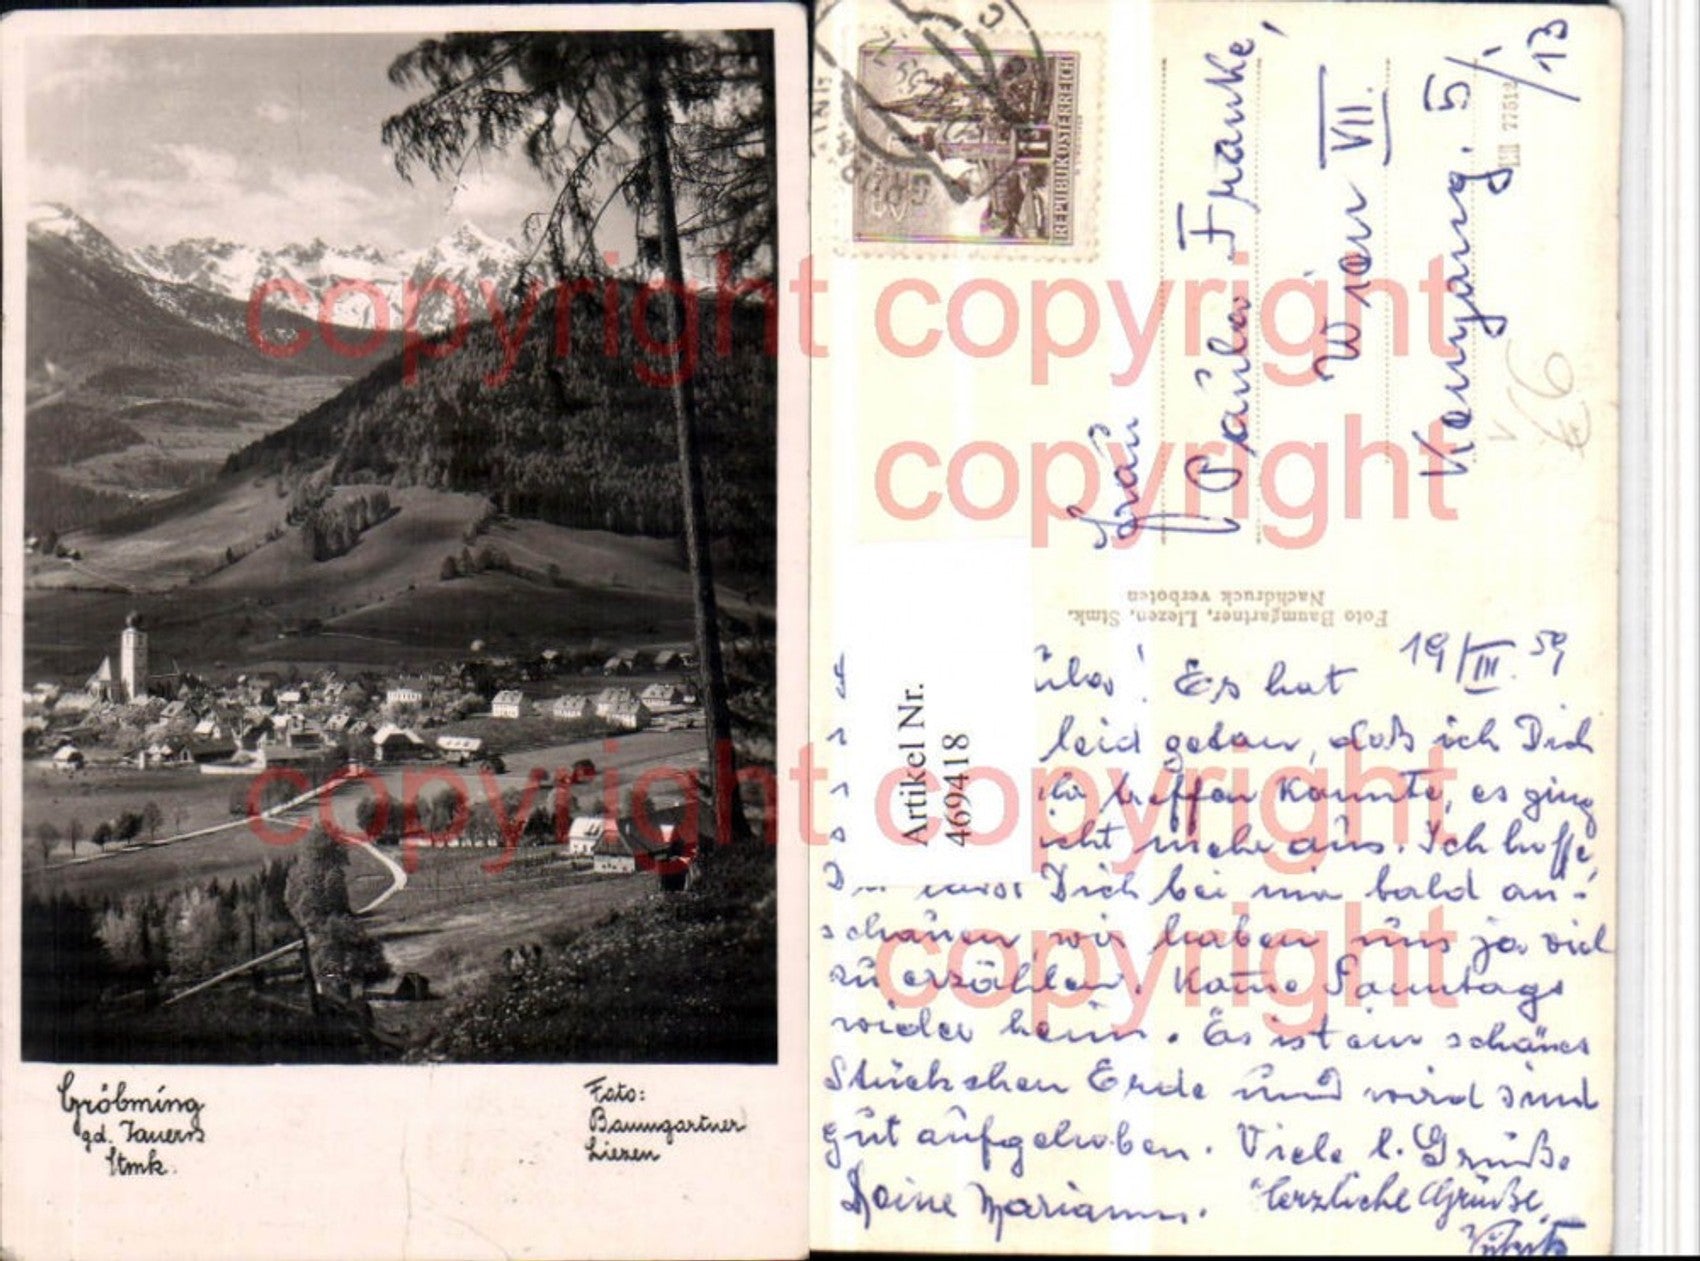 Gröbming
gd. Tauern
Stmk.
Foto:
Baumgartner
Liezen
copyright
copyright
copyright
copyright
copyright
copyright
copyright
REPUBLIK ÖSTERREICH
Frau
Paula Franke,
Wien VII.
5/
13
77518
€6
Foto Baumgartner, Liezen, Stmk.
Nachdruck verboten
Artikel Nr.
469418
19/III. 59
Es hat
leid getan, daß ich Dich
treffen konnte, es ging
nicht mehr aus. Ich hoffe,
Du Dich bei mir bald an-
schauen, wir haben uns ja viel
zu erzählen. Komme Sonntags
wieder heim. Es ist ein schönes
Stückchen Erde und wird sind
gut aufgehoben. Viele l. Grüße
Deine Mariann.
herzliche Grüße